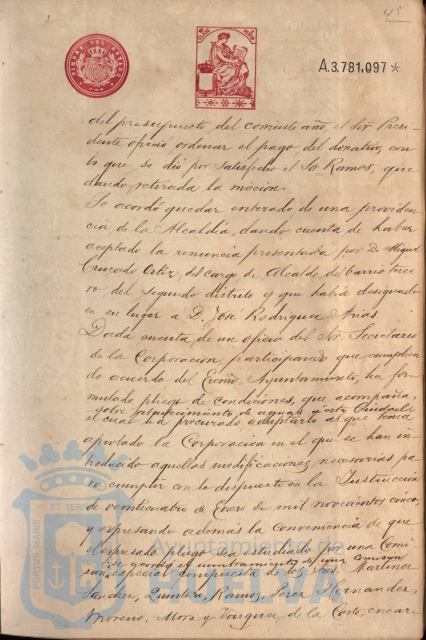 45
TIMBRE DEL ESTADO
A.3.781,097*
del presupuesto del corriente año, el Sor Presi-
dente ofreció ordenar el pago del donativo, con
lo que se dió por satisfecho el Sor Ramos, que-
dando retirada la moción.
Se acordó quedar enterado de una providen-
cia de la Alcaldía, dando cuenta de haber
aceptado la renuncia presentada por D. Miguel
Cruzado Ortiz, del cargo de Alcalde del barrio terce-
ro del segundo distrito y que había designado
en su lugar a D. José Rodriguez Arias
Dada cuenta de un oficio del Sor Secretario
de la Corporacion participando que cumplien-
do acuerdo del Excmo Ayuntamiento, ha for-
mulado pliego de condiciones, que acompaña,
sobre abastecimiento de aguas a esta Ciudad,
el cual ha procurado adaptarlo al que tenia
aprobado la Corporacion en el que se han in-
troducido aquellas modificaciones necesarias pa-
ra cumplir con lo dispuesto en la Instrucción
de veinticuatro de Enero de mil novecientos cinco,
y expresando además la conveniencia de que
el expresado pliego sea estudiado por una Comi-
se acordó el nombramiento de una comisión
sion especial compuesta de los Sres Martinez
Sanchez, Quintero, Ramos, Perez Hernandez,
Moreno, Mora y Vazquez de la Corte, encar-
PORTUS MARIS
ET TERRAE
Ayuntamiento de
HUELVA